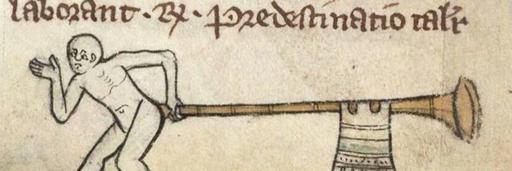 laborant · R · Predestinatio talr